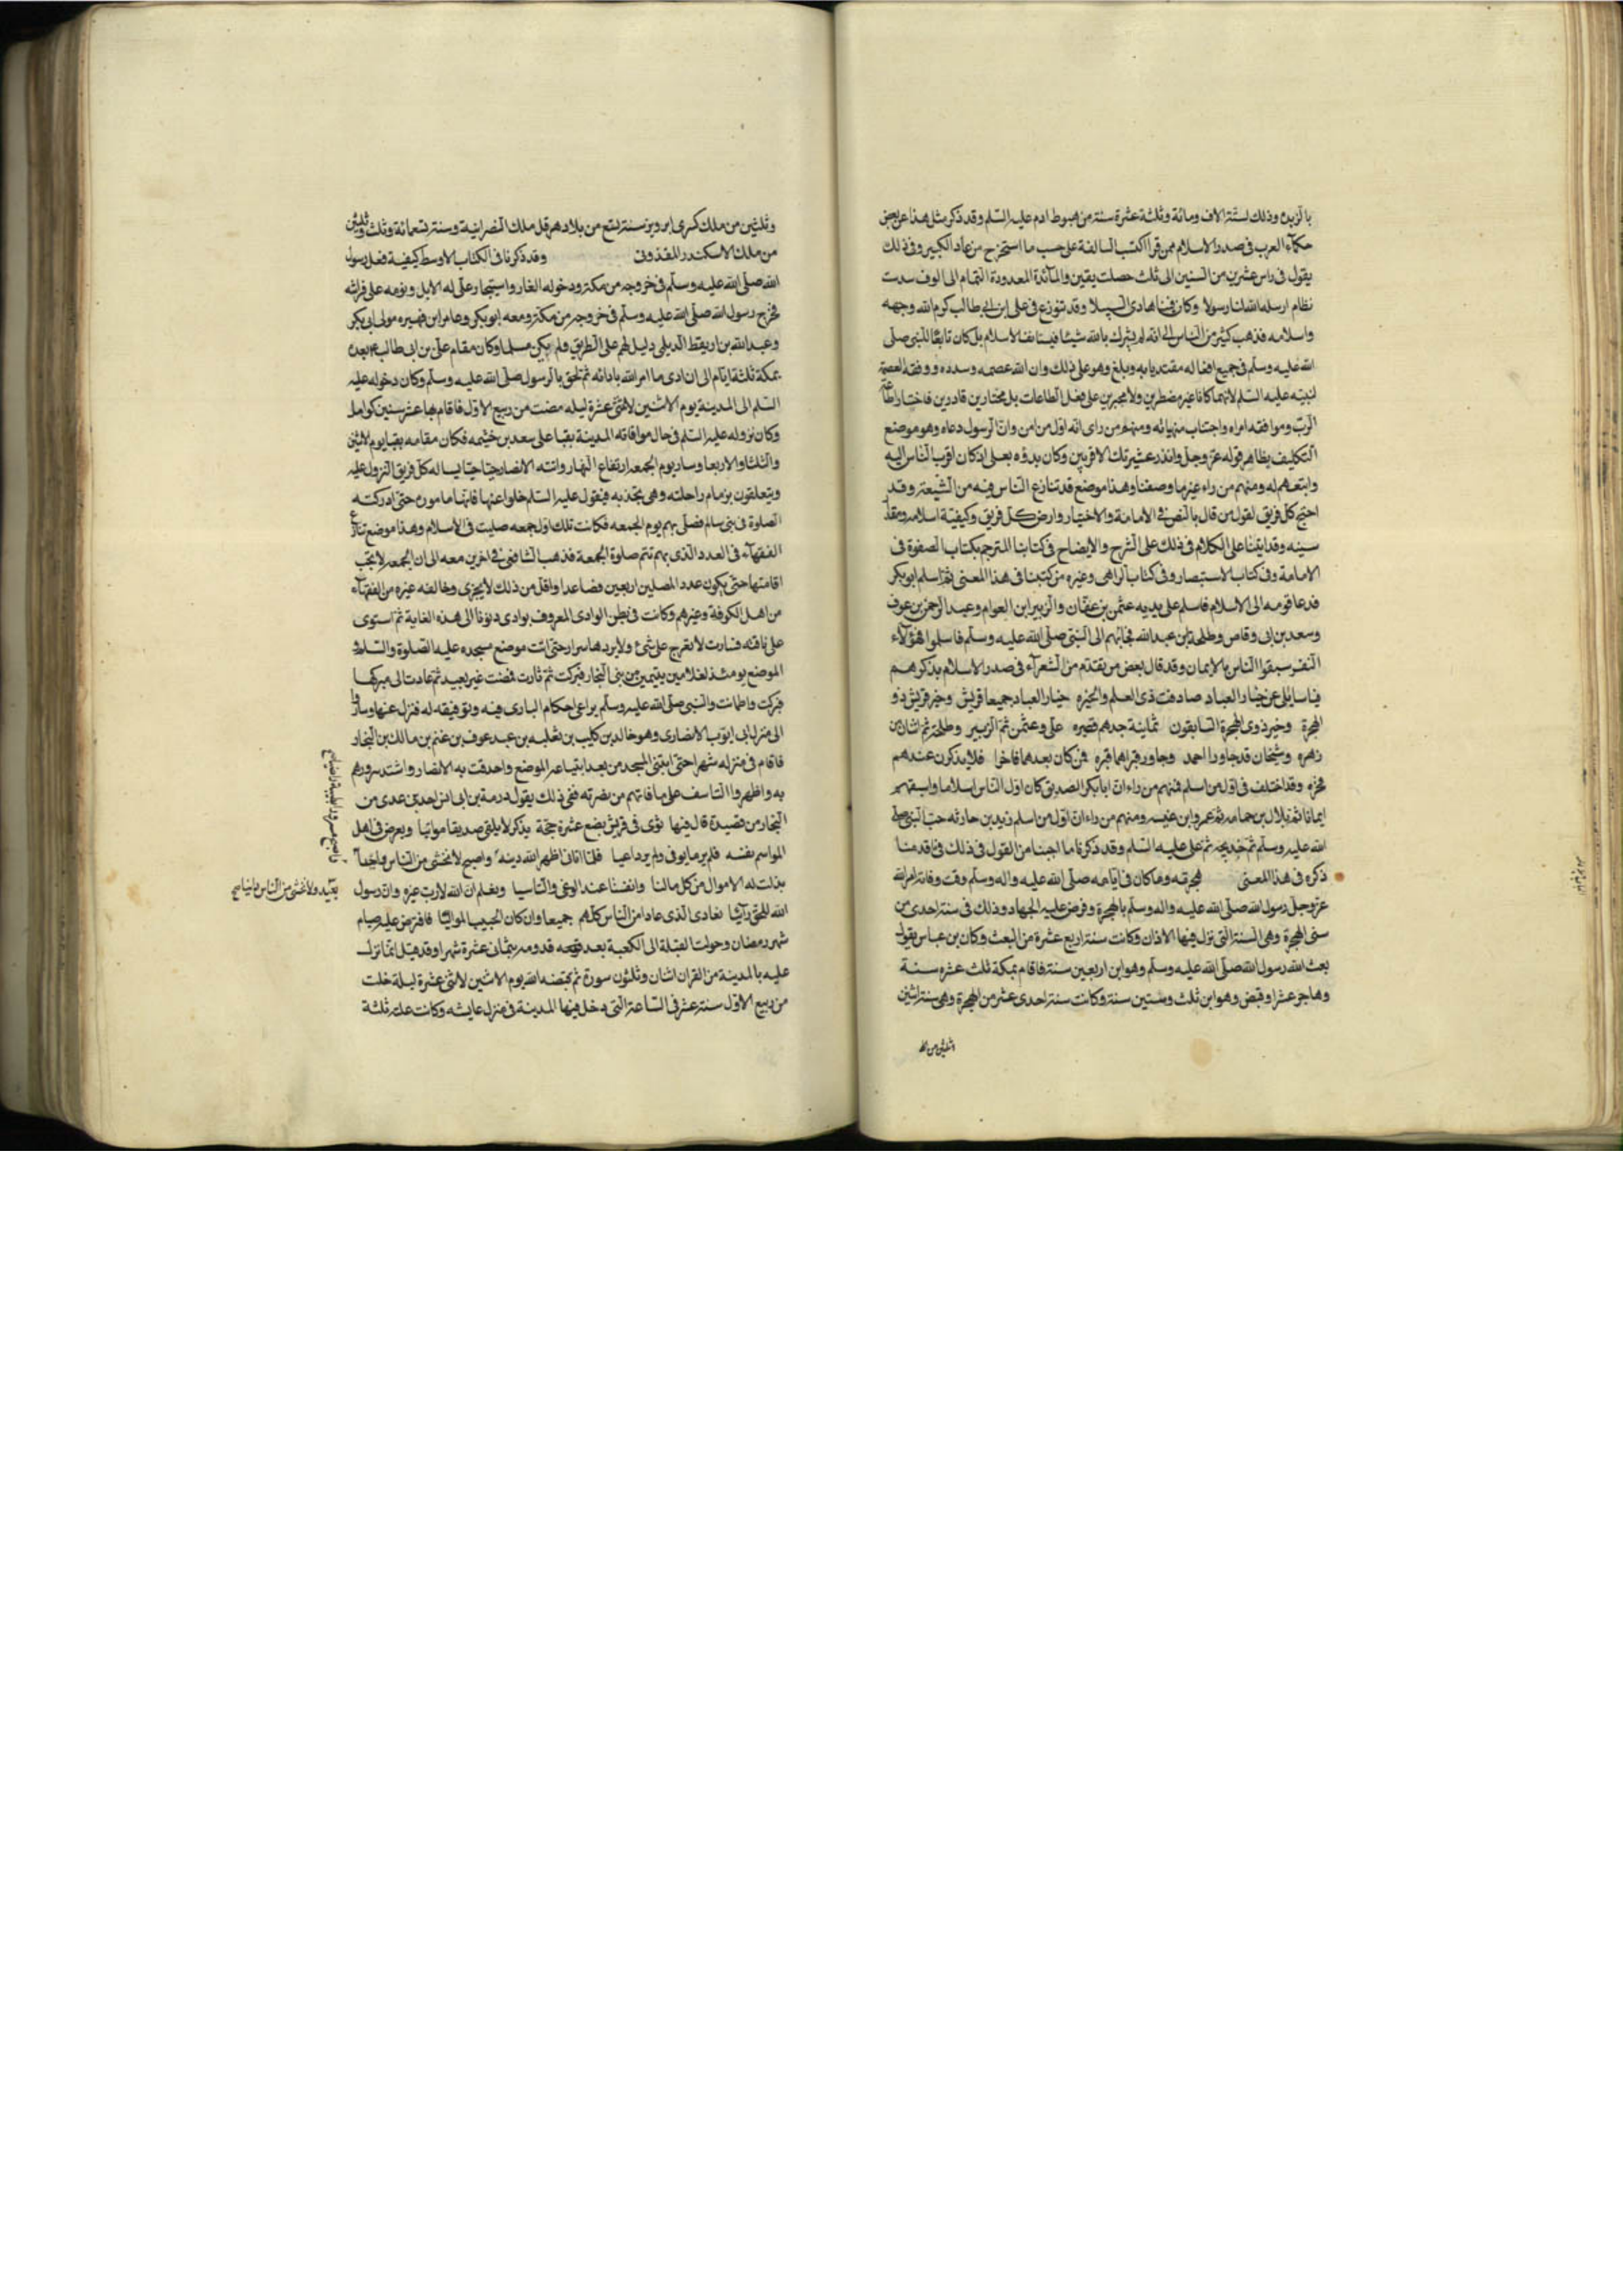 بالزبده وذلك لستة الاف ومائة وثلثة عشرة سنة من هبوط ادم عليه السلم وقد ذكر مثل هذا عن بعض
حكمآء العرب فى صدر الاسلام ممن قرا الكتب السالفة على حسب ما استخرج من عاد الكبير وفى ذلك
يقول فى راس عشرين من السنين الى ثلث حصلت يقين والمائدة المعدودة التمام الى الوف سدت
نظام ارسله الله لنا رسولا وكان فينا هادى السبيلا وقد تنوزع فى على ابن ابى طالب كرم الله وجهه
واسلامه فذهب كثير من الناس الى انه لم يشرك بالله شيئا فيستانف الاسلام بل كان تابعًا للنبى صلى
الله عليه وسلم فى جميع افعاله مقتديا به وبلغ وهو على ذلك وان الله عصمه وسدده ووفقه لعصمة
لنبيه عليه السلم لانهما كانا غير مضطرين ولا مجبرين على فعل الطاعات بل مختارين قادرين فاختارا طاعة
الرب وموافقه امراه واجتناب منهياته ومنهم من راى انه اول من امن وان الرسول دعاه وهو موضع
التكليف بظاهر قوله عز وجل وانذر عشيرتك الاقربين وكان بدؤه بعلى اذ كان اقرب الناس اليه
واتبعهم له ومنهم من راء غير ما وصفنا وهذا موضع قد تنازع الناس فيه من الشيعة وقد
احتج كل فريق لقوله من قال بالنص فى الامامة والاختيار وارض كل فريق وكيفية اسلامه ومقدار
سينه وقد ايتنا على الكلام فى ذلك على الشرح والايضاح فى كتابنا المترجم بكتاب الصفوة فى
الامامة وفى كتاب الاستبصار وفى كتاب الزاهى وغيره من كتبنا فى هذا المعنى ثم اسلم ابو بكر
فدعا قومه الى الاسلام فاسلم على يديه عثمن بن عفان والزبير ابن العوام وعبد الرحمن بن عوف
وسعد بن ابى وقاص وطلحة بن عبد الله فجائهم الى النبى صلى الله عليه وسلم فاسلموا فهؤلآء
النفر سبقوا الناس بالايمان وقد قال بعض من تقدم من الشعرآء فى صدر الاسلام يذكرهم
فيا سايلى عن خيار العباد صادفت ذى العلم والخبره خيار العباد جميعا قريش وخير قريش ذو
الهجرة وخير ذوى الهجرة السابقون ثمانية جدهم فصيره على وعثمن ثم الزبير وطلحة ثم اثنان من
زهره وشيخان قد جاورا احمد وجاور قبراهما قبره فمن كان بعدهما فاخرا فلا يذكرن عندهم
فخره وقد اختلف فى اول من اسلم فمنهم من راءان ابا بكر الصديق كان اول الناس اسلاما واسبقهم
ايمانا ثم بلال بن حمامه ثم عمرو ابن عنبسه ومنهم من راءان اول من اسلم زيد بن حارثه حب النبى صلى
الله عليه وسلم ثم خديجة ثم على عليه السلم وقد ذكرنا ما اجبنا من القول فى ذلك فى ما قدمنا
ذكره فى هذا المعنى هجرته وما كان فى ايامه صلى الله عليه واله وسلم وقت وفاته امر الله
عز وجل رسول الله صلى الله عليه واله وسلم بالهجرة وفرض عليه الجهاد وذلك فى سنة احدى من
سنى الهجرة وهى السنة التى نزل فيها الاذان وكانت سنة اربع عشرة من البعث وكان بن عباس يقول
بعث الله رسول الله صلى الله عليه وسلم وهو ابن اربعين سنة فاقام بمكة ثلث عشره سنة
وهاجر عشرا وقبض وهو ابن ثلث وستين سنة وكانت سنة احدى عشر من الهجرة وهى سنة اثنين
وثلثين من ملك كسرى ابرويز سنة لتسع من بلاد هرقل ملك النصرانية وسنة تسعمائة وثلث وثلثين
من ملك الاسكندر المقذونى وقد ذكرنا فى الكتاب الاوسط كيفية فعل رسول
الله صلى الله عليه وسلم فى خروجه من مكة ودخوله الغار واستيجار على له الابل ونومه على فراشه
فخرج رسول الله صلى الله عليه وسلم فى خروجه من مكة ومعه ابو بكر وعامر ابن فهيره مولى ابى بكر
وعبد الله بن اريقط الديلى دليل لهم على الطريق ولم يكن مسلما وكان مقام على بن ابى طالب بعده
بمكة ثلثة ايام الى ان ادى ما امر الله بادائه ثم لحق بالرسول صلى الله عليه وسلم وكان دخوله عليه
السلم الى المدينة يوم الاثنين لاثنتى عشرة ليله مضت من ربيع الاول فاقام بها عشر سنين كوامل
وكان نزوله عليه السلم فى حال موافاته المدينة بقبا على سعد بن خثيمه فكان مقامه بقبا يوم لاثنين
والثلثا والاربعا وسار يوم الجمعه ارتفاع النهار واتته الانصار حيا حيا يساله كل فريق النزول عليه
ويتعلقون بزمام راحلته وهى تجذبه فيقول عليه السلم خلوا عنها فانها مامورة حتى ادركته
الصلوة فى بنى سالم فصلى بهم يوم الجمعه فكانت تلك اول جمعه صليت فى الاسلام وهذا موضع تنازع
الفقهآء فى العدد الذى بهم تتم صلوة الجمعة فذهب الشافعى فى اخرين معه الى ان الجمعه لا تجب
اقامتها حتى يكون عدد المصلين اربعين فصاعدا واقل من ذلك لا يجزى وخالفه غيره من الفقهآء
من اهل الكوفة وغيرهم وكانت فى بطن الوادى المعروف بوادى دنونا الى هذه الغاية ثم استوى
على ناقته فسارت لا تعرج على شئ ولا يردها سرار حتى اتت موضع مسجده عليه الصلوة والسلام
الموضع يومئذ لغلامين يتيمين من بنى النجار فبركت ثم ثارت فمضت غير بعيد ثم عادت الى مبركها
فبركت واطمانت والنبى صلى الله عليه وسلم يراعى احكام البارى فيه وتوفيقه له فنزل عنها وسار
الى منزل ابى ايوب الانصارى وهو خالد بن كليب بن ثعلبه بن عبد عوف بن غنم بن مالك بن النجار
فاقام فى منزله شهرا حتى ابتنى المسجد من بعد ابتياعه الموضع واحدقت به الانصار واشتد سرورهم
به واظهروا التاسف على ما فاتهم من نصرته ففى ذلك يقول درمة بن ابى انس احد بن عدى من
النجار من قصيدة قال فيها ثوى فى قريش بضع عشرة حجة يذكر لا يلقى صديقا مواتيا ويعرض فى اهل
المواسم نفسه فلم ير ما يوفى ولم ير داعيا فلما اتانا اظهر الله دينه واصبح لا نخشى من الناس واحدًا
بذلت له الاموال من كل مالنا وانفسنا عند الوغى والتاسيا ونعلم ان الله لا رب غيره وان رسول
الله للحق رآئيا نعادى الذى عاد امن الناس كلهم جميعا وان كان الحبيب المواليا فافترض عليه صيام
شهر رمضان وحولت القبلة الى الكعبة بعد قدومه بثمان عشرة شهرا وقد قيل انما نزل
عليه بالمدينة من القران اثنان وثلثون سورة ثم قبضه الله يوم الاثنين لاثنى عشرة ليلة خلت
من ربيع الاول سنة عشر فى الساعة التى دخل فيها المدينة فى منزل عايشه وكانت علته ثلثة